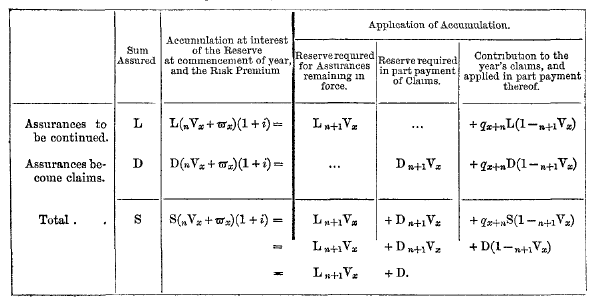 Application of Accumulation.
Sum Assured
Accumulation at interest of the Reserve at commencement of year, and the Risk Premium
Reserve required for Assurances remaining in force.
Reserve required in part payment of Claims.
Contribution to the year's claims, and applied in part payment thereof.
Assurances to be continued. L L(ₙVₓ+ϖₓ)(1+i)= L ₙ₊₁Vₓ ... + qₓ₊ₙL(1−ₙ₊₁Vₓ)
Assurances be-come claims. D D(ₙVₓ+ϖₓ)(1+i)= ... D ₙ₊₁Vₓ + qₓ₊ₙD(1−ₙ₊₁Vₓ)
Total . . S S(ₙVₓ+ϖₓ)(1+i)= L ₙ₊₁Vₓ + D ₙ₊₁Vₓ + qₓ₊ₙS(1−ₙ₊₁Vₓ)
= L ₙ₊₁Vₓ + D ₙ₊₁Vₓ + D(1−ₙ₊₁Vₓ)
= L ₙ₊₁Vₓ + D.